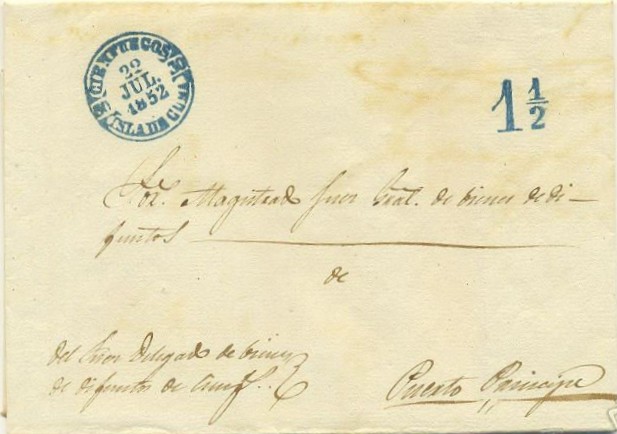 CIENFUEGOS
22
JUL.
1852
ISLA DE CUBA
1 1/2
Sor. Magistrado Juez Gral. de bienes de di-
funtos
de
del Juez Delegado de bienes
de difuntos de
Puerto Principe